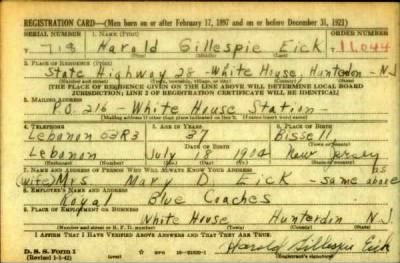 REGISTRATION CARD—(Men born on or after February 17, 1897 and on or before December 31, 1921)
SERIAL NUMBER 1. NAME (Print) ORDER NUMBER
718 Harold Gillespie Eick 11,044
(First) (Middle) (Last)
2. PLACE OF RESIDENCE (Print)
State Highway 28 - White House, Hunterdon - NJ
(Number and street) (Town, township, village, or city) (County) (State)
[THE PLACE OF RESIDENCE GIVEN ON THE LINE ABOVE WILL DETERMINE LOCAL BOARD
JURISDICTION; LINE 2 OF REGISTRATION CERTIFICATE WILL BE IDENTICAL]
3. MAILING ADDRESS
P.O. 216 - White House Station -
[Mailing address if other than place indicated on line 2. If same insert word same]
4. TELEPHONE 5. AGE IN YEARS 6. PLACE OF BIRTH
Lebanon 03R3 37 Bissell
DATE OF BIRTH (Town or county)
Lebanon July 18 1904 New Jersey
(Exchange) (Number) (Mo.) (Day) (Yr.) (State or country)
7. NAME AND ADDRESS OF PERSON WHO WILL ALWAYS KNOW YOUR ADDRESS as
(wife) Mrs. Mary D. Eick - same above
8. EMPLOYER'S NAME AND ADDRESS
Royal Blue Coaches
9. PLACE OF EMPLOYMENT OR BUSINESS
White House Hunterdin N.J.
(Number and street or R. F. D. number) (Town) (County) (State)
I AFFIRM THAT I HAVE VERIFIED ABOVE ANSWERS AND THAT THEY ARE TRUE.
D. S. S. Form 1
(Revised 1-1-42) (over) Harold Gillespie Eick
(Registrant's signature)